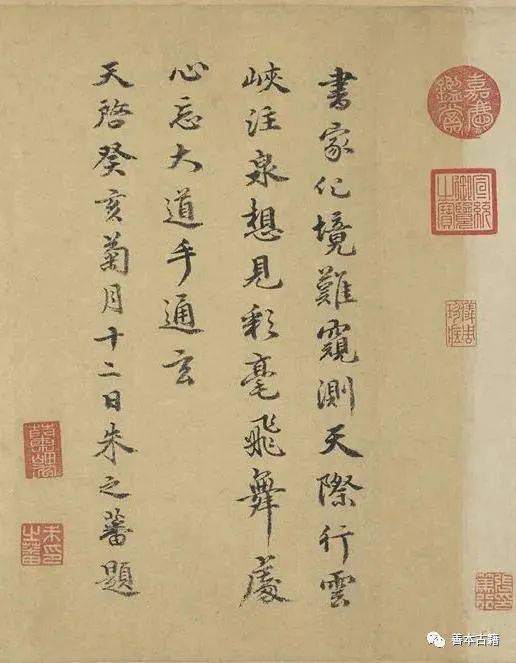 書家化境難窺測天際行雲
峽注泉想見彩毫飛舞處
心忘大道手通玄
天啓癸亥菊月十二日朱之蕃題
嘉慶鑑賞
宣統御覽之寶
善本古籍